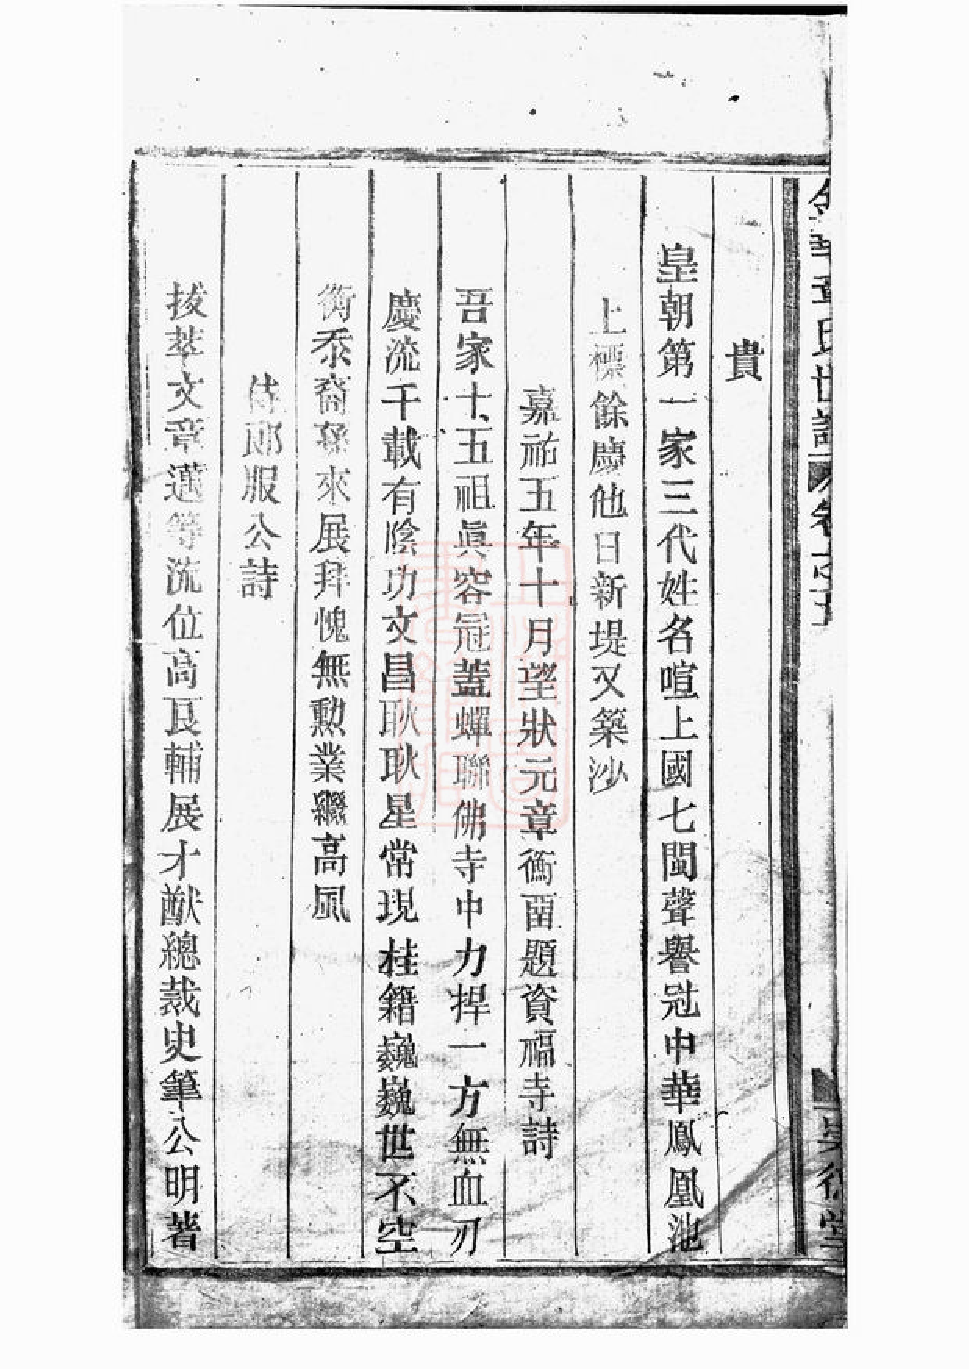 金華章氏世譜 卷之五
貴
皇朝第一家三代姓名喧上國七閩聲譽冠中華鳳凰池
上標餘慶他日新堤又築沙
嘉祐五年十月望狀元章衡畱題資福寺詩
吾家十五祖眞容冠蓋蟬聯佛寺中力捍一方無血刃
慶流千載有陰功文昌耿耿星常現桂籍巍巍世不空
衡忝裔孫來展拜愧無勲業繼高風
侍郎服公詩
拔萃文章邁等流位高良輔展才猷總裁史筆公明著